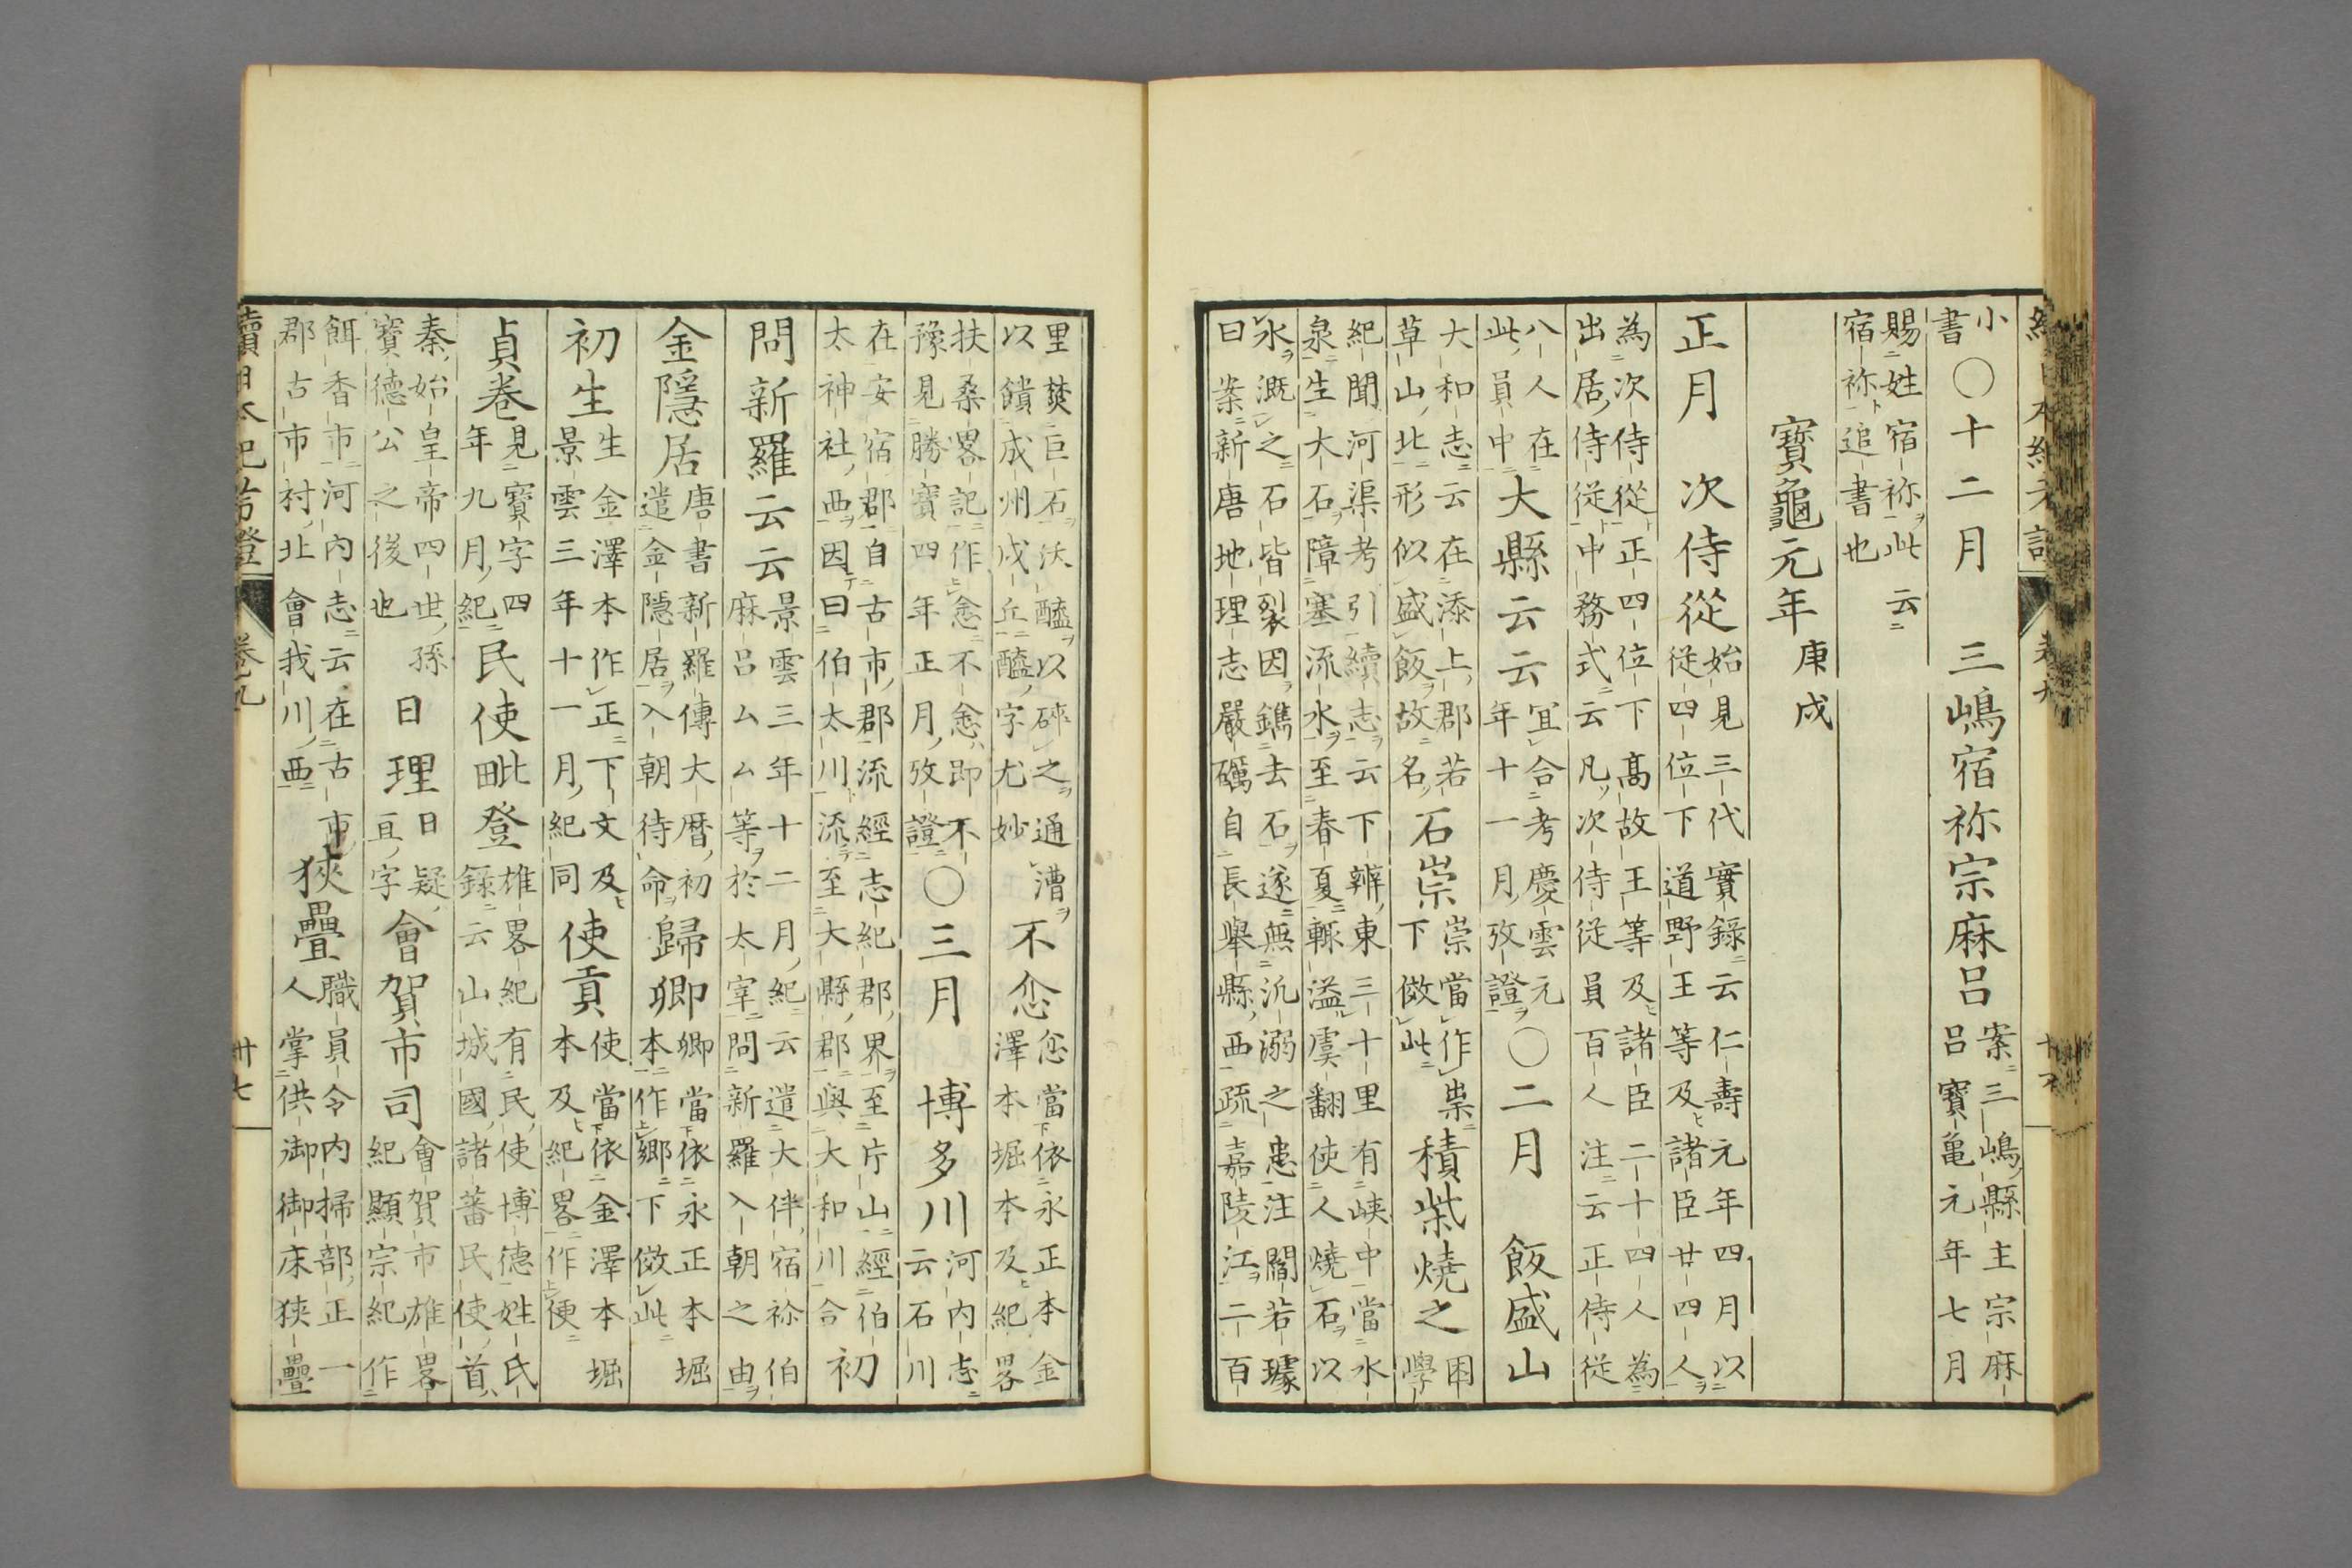 小
書
○十二月　三嶋宿祢宗麻呂
案三嶋縣主宗麻
呂寶亀元年七月
賜姓宿祢此云
宿祢追書也
寶龜元年
庚戌
正月　次侍從
始見三代實錄云仁壽元年四月以
從四位下道野王等及諸臣廿四人
為次侍從正四位下髙故王等及諸臣二十四人為
出居侍從中務式云凡次侍從員百人注云正侍從
八人在
此員中
大縣云云
冝合考慶雲元
年十一月攷證
○二月　飯盛山
大和志云在添上郡若
草山北形似盛飯故名
石崇
崇當作祟
下倣此
積柴燒之
困
學
紀聞河渠考引續志云下辨東三十里有峽中當水
泉生大石障塞流水至春夏輙溢虞翻使人燒石以
水溉之石皆裂因鐫去石遂無氾溺之患注閻若璩
曰案新唐地理志嚴礪自長舉縣西疏嘉陵江二百
里焚巨石沃醯以碎之通漕
以饋成州戍丘醯字尤妙
不悆
悆當依永正本金
澤本堀本及紀畧
扶桑畧記作悆不悆即不
豫見勝寶四年正月攷證
○三月　博多川
河内志
云石川
在安宿郡自古市郡流經志紀郡界至片山經伯
太神社西因曰伯太川流至大縣郡與大和川合
初
問新羅云云
景雲三年十二月紀云遣大伴宿祢伯
麻呂ムム等於太宰問新羅入朝之由
金隱居
唐書新羅傳大暦初
遣金隱居入朝待命
歸卿
卿當依永正本堀
本作鄉下倣此
初生
生金澤本作正下文及
景雲三年十一月紀同
使貢
使當依金澤本堀
本及紀畧作便
貞卷
見寶字四
年九月紀
民使毗登
雄畧紀有民使博德姓氏
錄云山城國諸蕃民使首
秦始皇帝四世孫
寶德公之後也
日理
日疑
亘字
會賀市司
會賀市雄畧
紀顯宗紀作
餌香市河内志云在古市
郡古市村北會我川西
狹疊
職員令内掃部正一
人掌供御御床狹疊
續日本紀考證　卷九　卅七